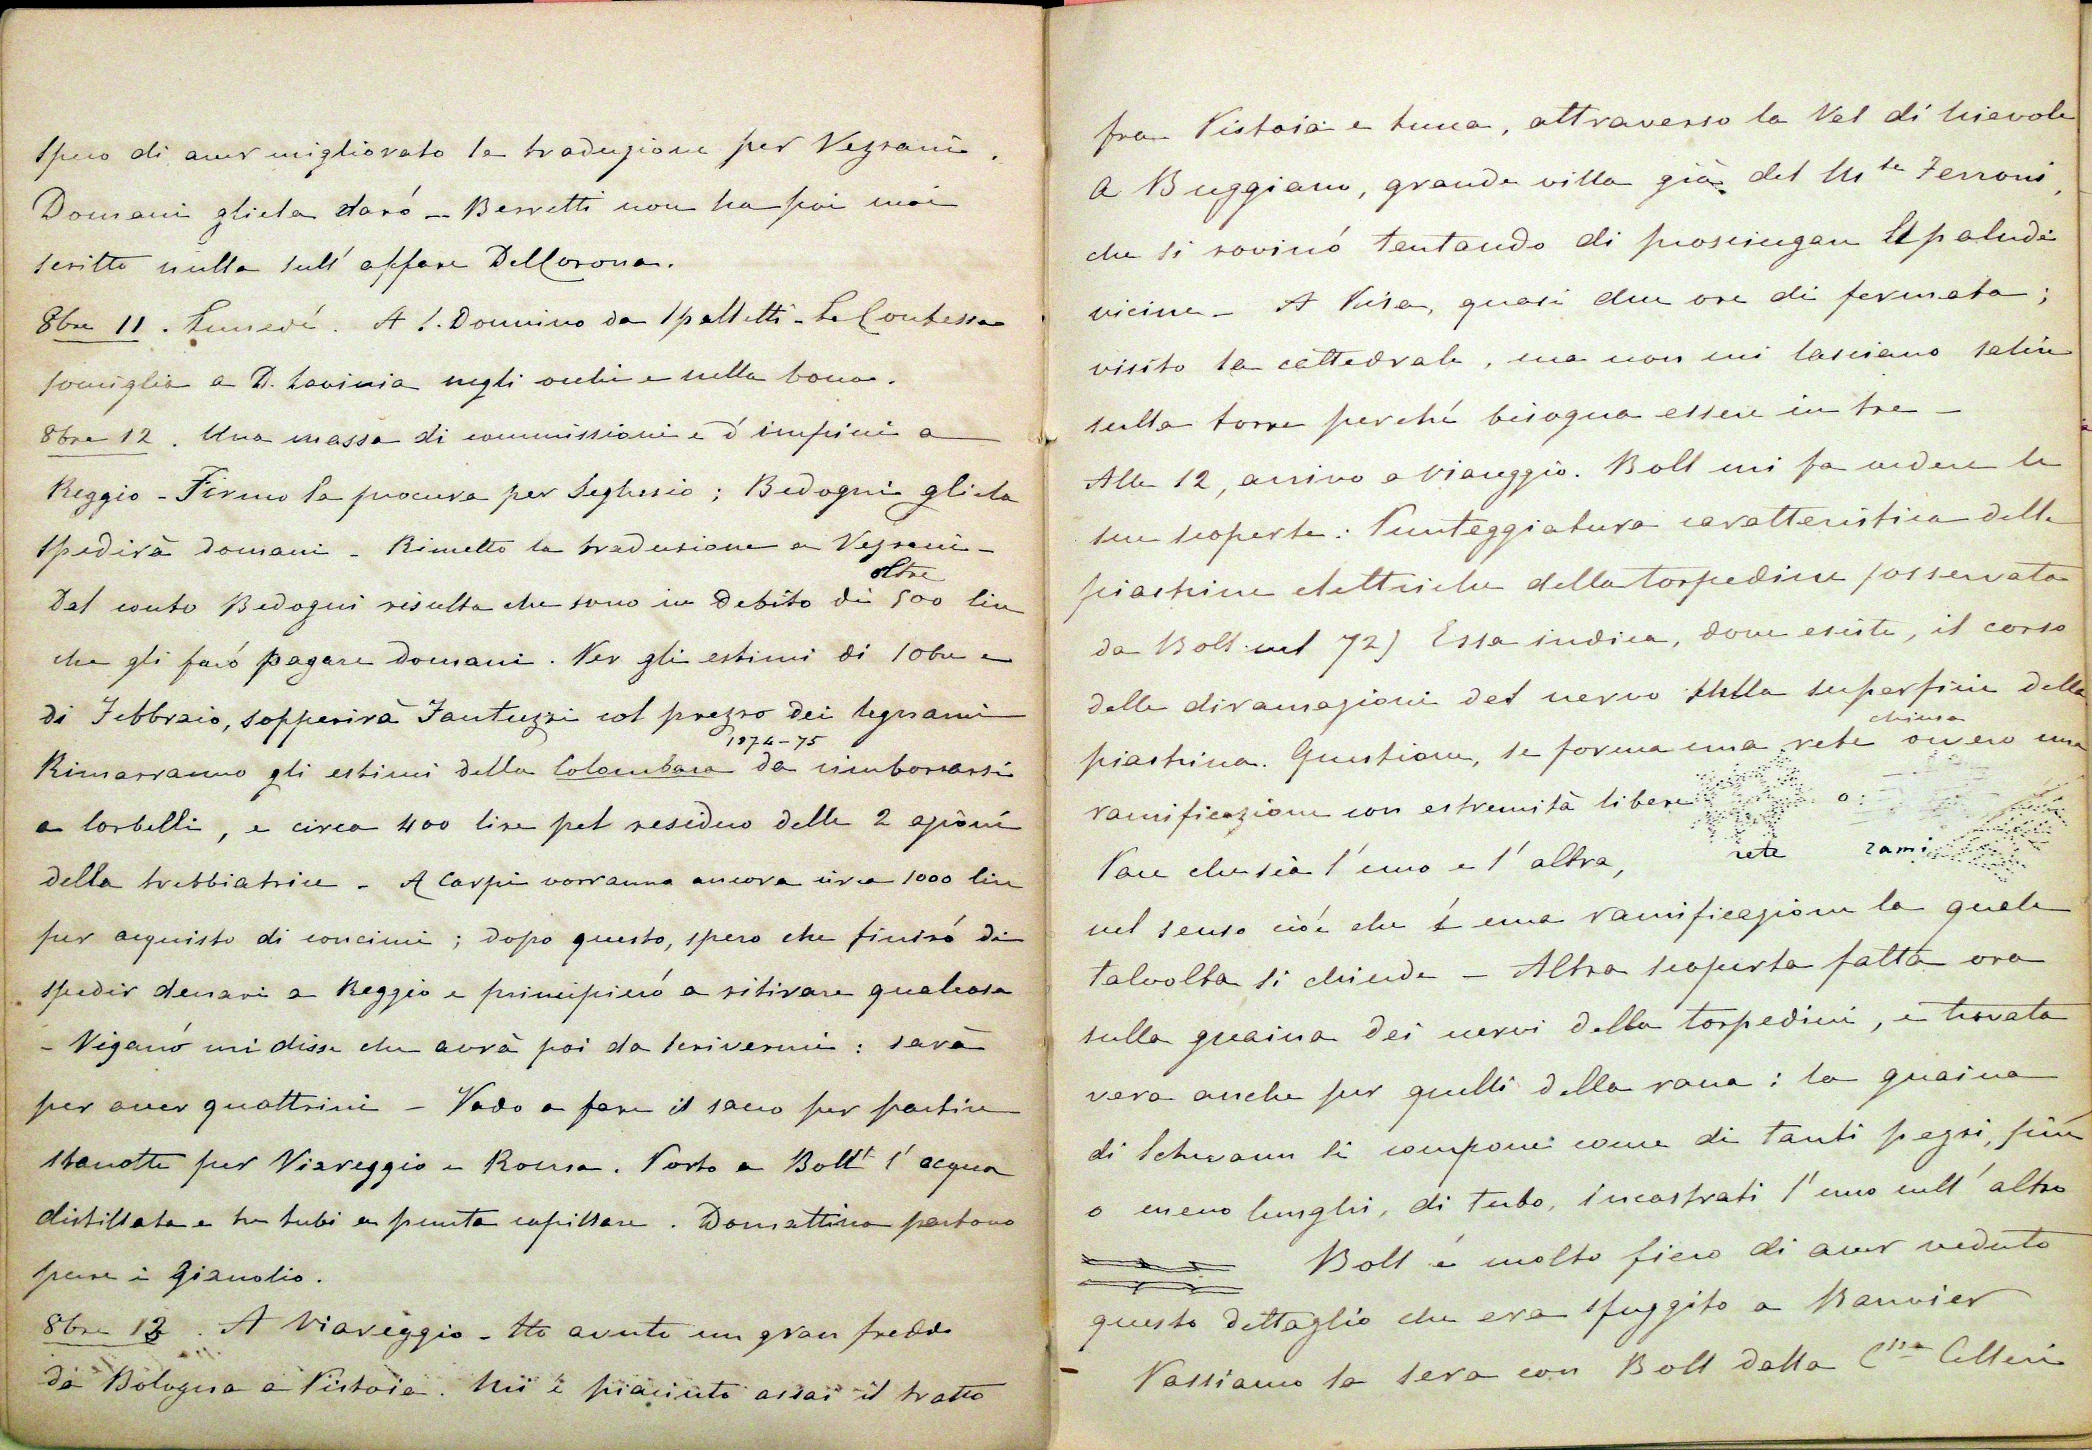 spero di aver migliorato la traduzione per Vezzani.
Domani gliela darò – Berretti non ha poi mai
scritto nulla sull' affare Dellcorona.
8bre 11. Lunedí. A S. Donnino da Spalletti – La Contessa
somiglia a D. Lavinia negli occhi e nella bocca.
8bre 12. Una massa di commissioni e d' impicci a
Reggio – Firmo la procura per Seghesio; Bedogni gliela
spedirà domani – Rimetto la traduzione a Vezzani –
oltre
Dal conto Bedogni risulta che sono in debito di 500 lire
che gli farò pagare domani. Per gli estimi di 10bre e
di Febbraio, sopperirà Fantuzzi col prezzo dei legnami
1874-75
Rimarranno gli estimi della Colombara da rimborsarsi
a Corbelli, e circa 400 lire pel residuo delle 2 azioni
della trebbiatrice – A Carpi vorranno ancora circa 1000 lire
per acquisto di concimi; dopo questo, spero che finirò di
spedir denari a Reggio e principierò a ritirare qualcosa
– Viganò mi disse che avrà poi da scrivermi: sarà
per aver quattrini – Vado a fare il sacco per partire
stanotte per Viareggio e Roma. Porto a Boll l' acqua
distillata e tre tubi a punta capillare. Domattina partono
pure i Gianolio.
8bre 13. A Viareggio – Ho avuto un gran freddo
da Bologna a Pistoia. Mi è piaciuto assai il tratto
fra Pistoia e Lucca, attraverso la Val di Nievole
A Buggiano, grande villa già del Mse Ferroni,
che si rovinò tentando di prosciugare le paludi
vicine – A Pisa, quasi due ore di fermata;
visito la cattedrale, ma non mi lasciano salire
sulla torre perché bisogna essere in tre –
Alle 12, arrivo a Viareggio. Boll mi fa vedere le
sue scoperte: Punteggiatura caratteristica delle
piastrine elettriche della torpedine (osservata
da Boll nel 72) Essa indica, dove esiste, il corso
delle diramazioni del nervo sulla superficie della
chiusa
piastrina. Questione, se forma una rete ovvero una
ramificazione con estremità libere o:
rete rami
Pare che sia l' uno e l' altra,
nel senso cioé che é una ramificazione la quale
talvolta si chiude – Altra scoperta fatta ora
sulla guaina dei nervi della torpedini, e trovata
vera anche per quelli della rana: la guaina
di Schwann si compone come di tanti pezzi, piú
o meno lunghi, di tubo, incastrati l' uno nell' altro
Boll é molto fiero di aver veduto
questo dettaglio che era sfuggito a Ranvier
Passiamo la sera con Boll dalla Cssa Celleri